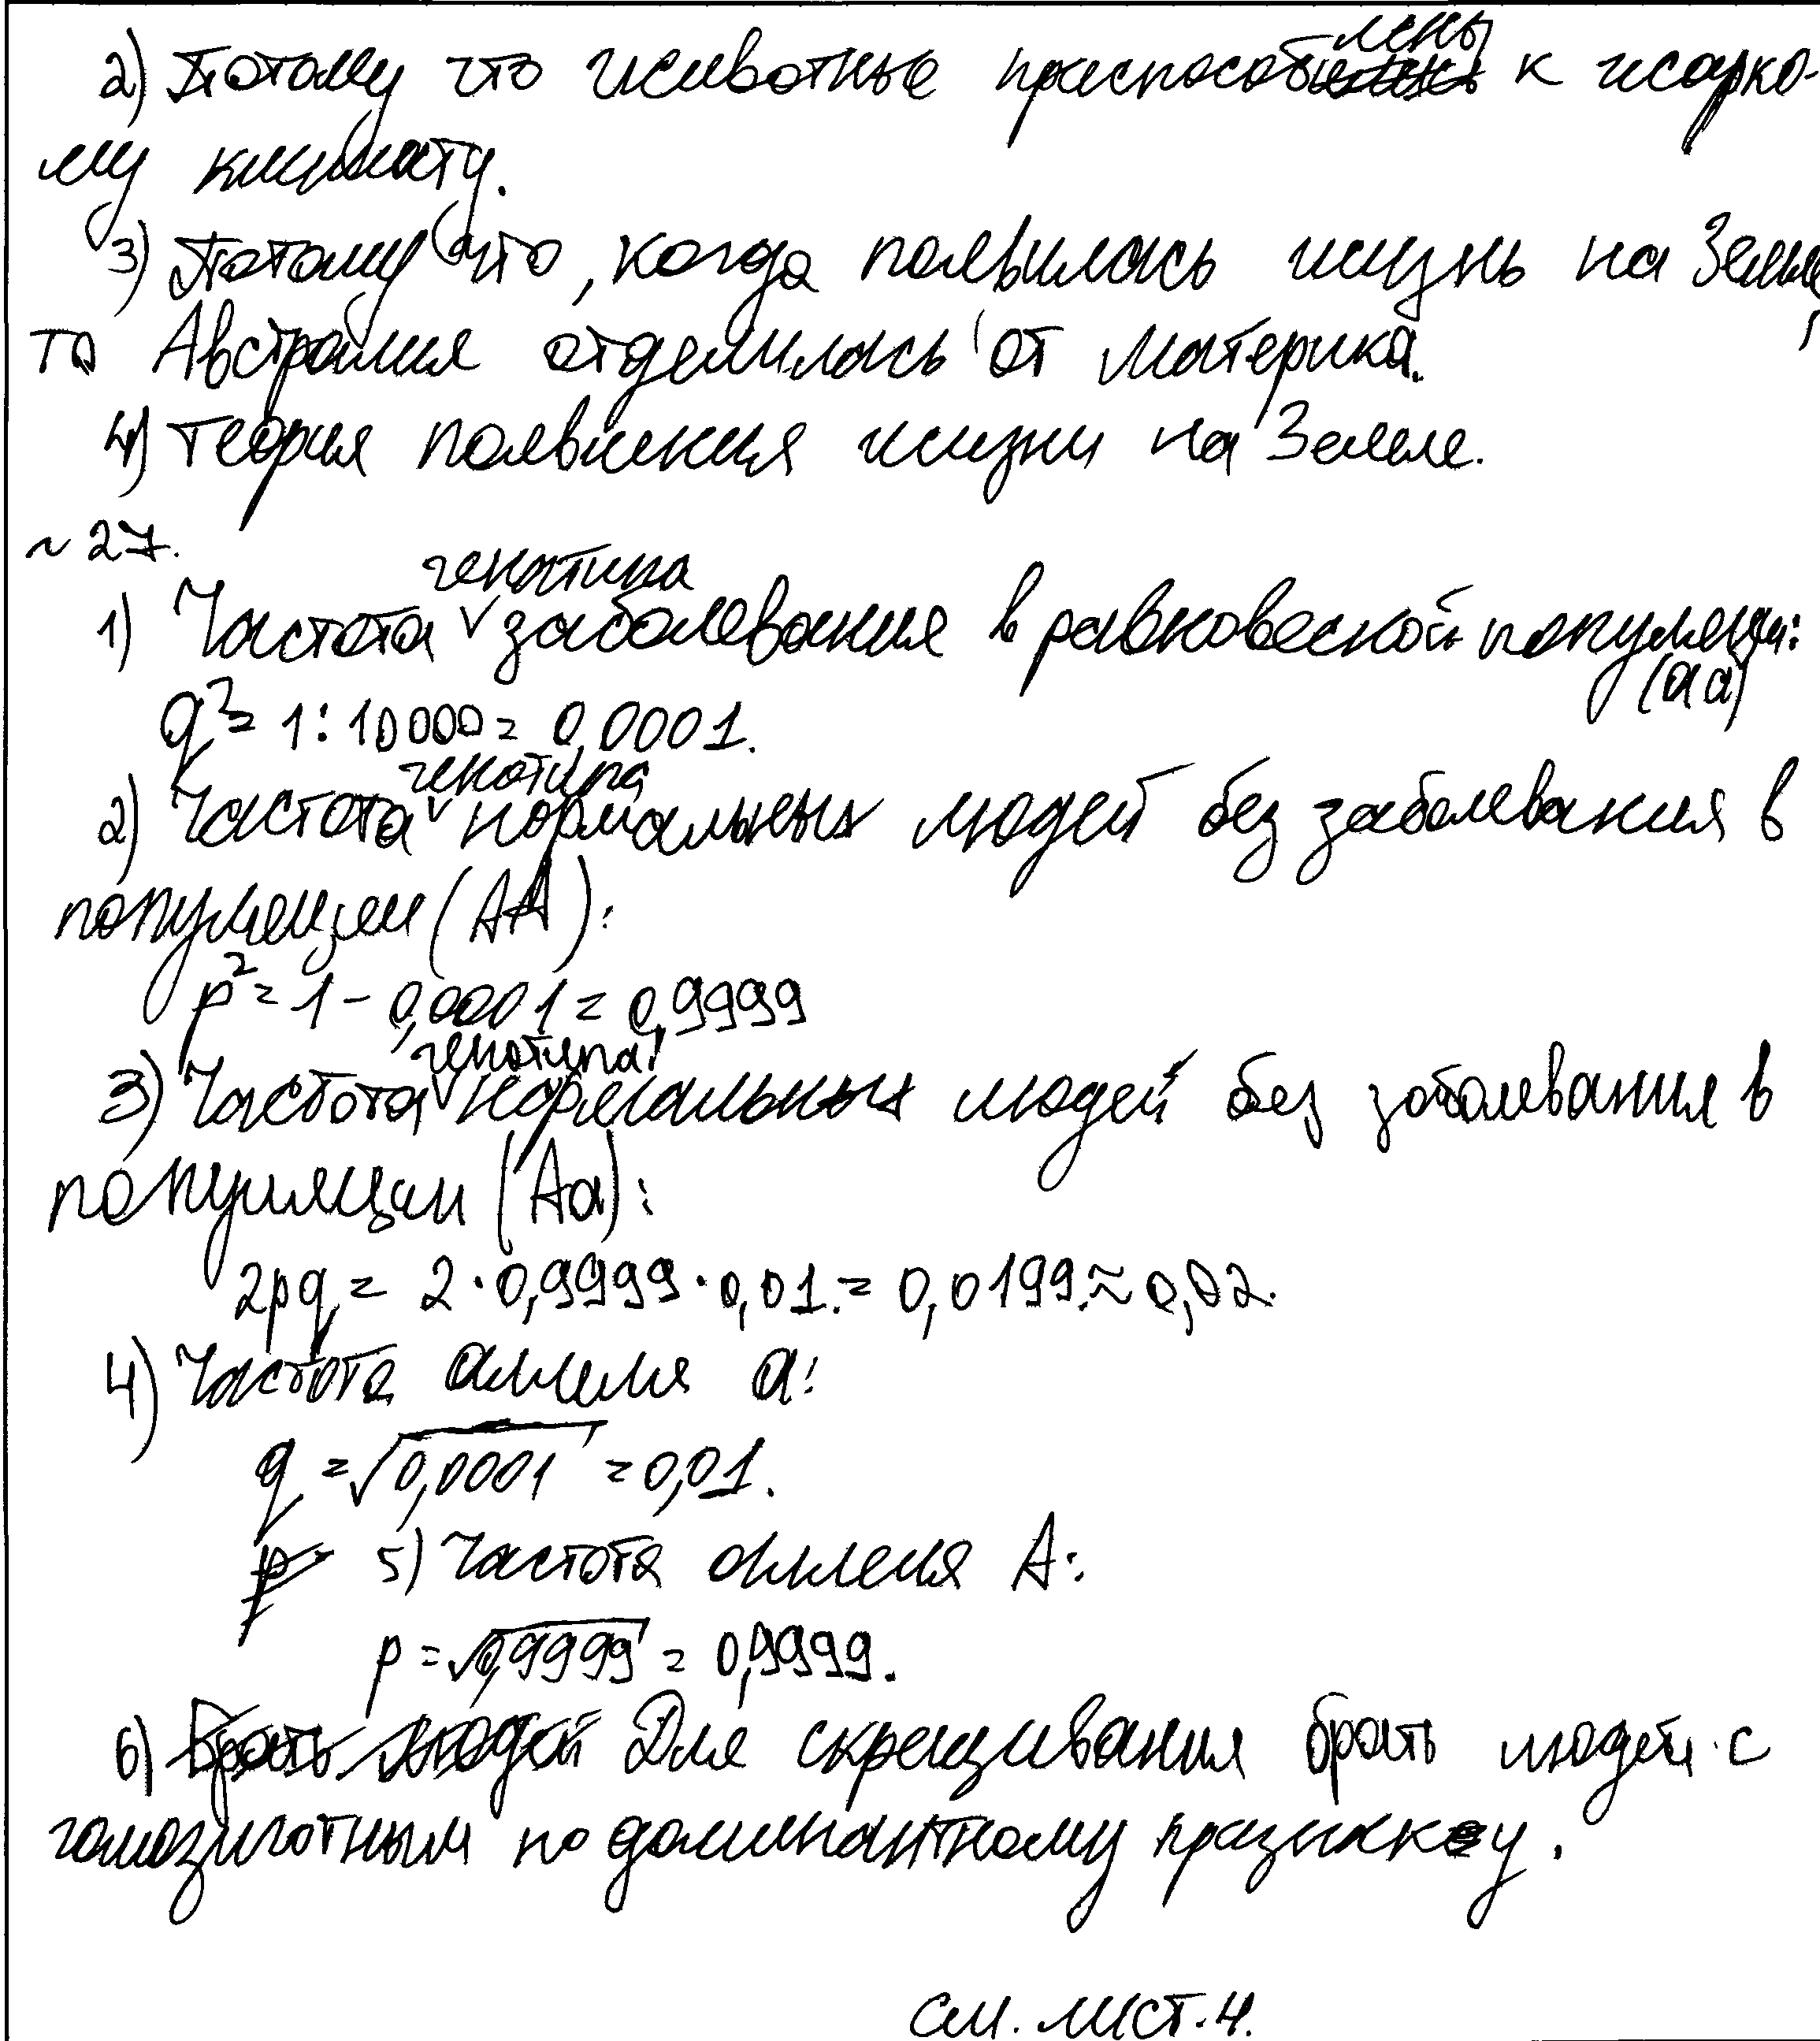 2) Потому что животные приспособлены к жарко-
му климату.
3) Потому что, когда появилась жизнь на Земле,
то Австралия отделилась от материка.
4) Теория появления жизни на Земле.
~ 27.
1) Частота генотипа заболевания в равновеской популяции: (aa)
q² = 1 : 10000 = 0,0001.
2) Частота генотипа нормальных людей без заболевания в
популяции (AA):
p² = 1 - 0,0001 = 0,9999
3) Частота генотипа нормальных людей без заболевания в
популяции (Aa):
2pq = 2 · 0,9999 · 0,01. = 0,0199. ≈ 0,02.
4) Частота аллеля a:
q = √0,0001 = 0,01.
5) Частота аллеля A:
p = √0,9999 = 0,9999.
6) Для скрещивания брать людей с
гомозиготным по доминантному признаку.
См. лист. 4.